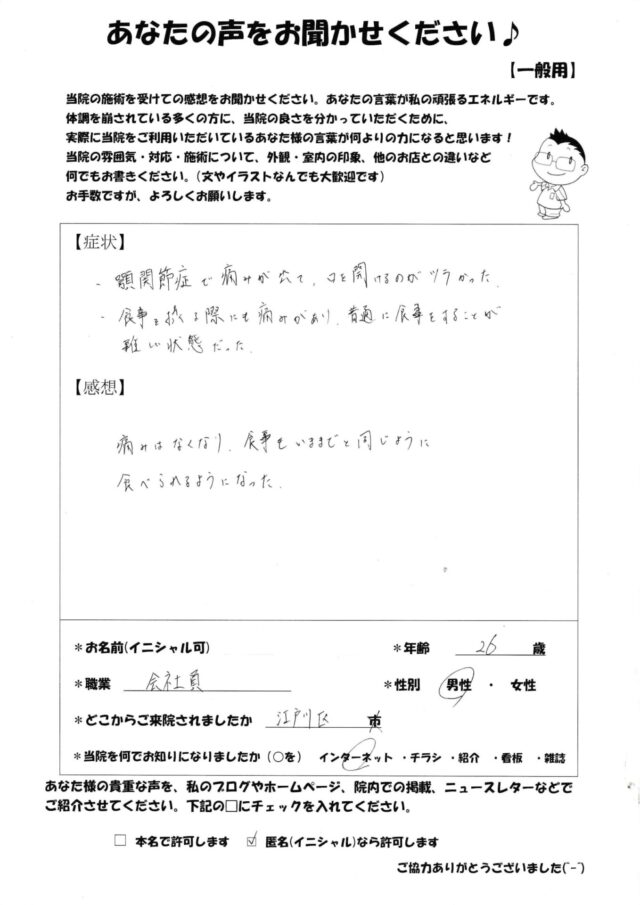 あなたの声をお聞かせください♪
【一般用】
当院の施術を受けての感想をお聞かせください。あなたの言葉が私の頑張るエネルギーです。
体調を崩されている多くの方に、当院の良さを分かっていただくために、
実際に当院をご利用いただいているあなた様の言葉が何よりの力になると思います!
当院の雰囲気・対応・施術について、外観・室内の印象、他のお店との違いなど
何でもお書きください。(文やイラストなんでも大歓迎です)
お手数ですが、よろしくお願いします。
【症状】
・顎関節症で痛みが出て、口を開けるのがツラかった。
・食事を摂る際にも痛みがあり、普通に食事をすることが
難しい状態だった。
【感想】
痛みはなくなり、食事もいままでと同じように
食べられるようになった。
*お名前(イニシャル可) *年齢 26 歳
*職業 会社員 *性別 男性 ・ 女性
*どこからご来院されましたか 江戸川区 市
*当院を何でお知りになりましたか(○を) インターネット ・チラシ ・紹介 ・看板 ・雑誌
あなた様の貴重な声を、私のブログやホームページ、院内での掲載、ニュースレターなどで
ご紹介させてください。下記の□にチェックを入れてください。
□ 本名で許可します ☑ 匿名(イニシャル)なら許可します
ご協力ありがとうございました(^-^)